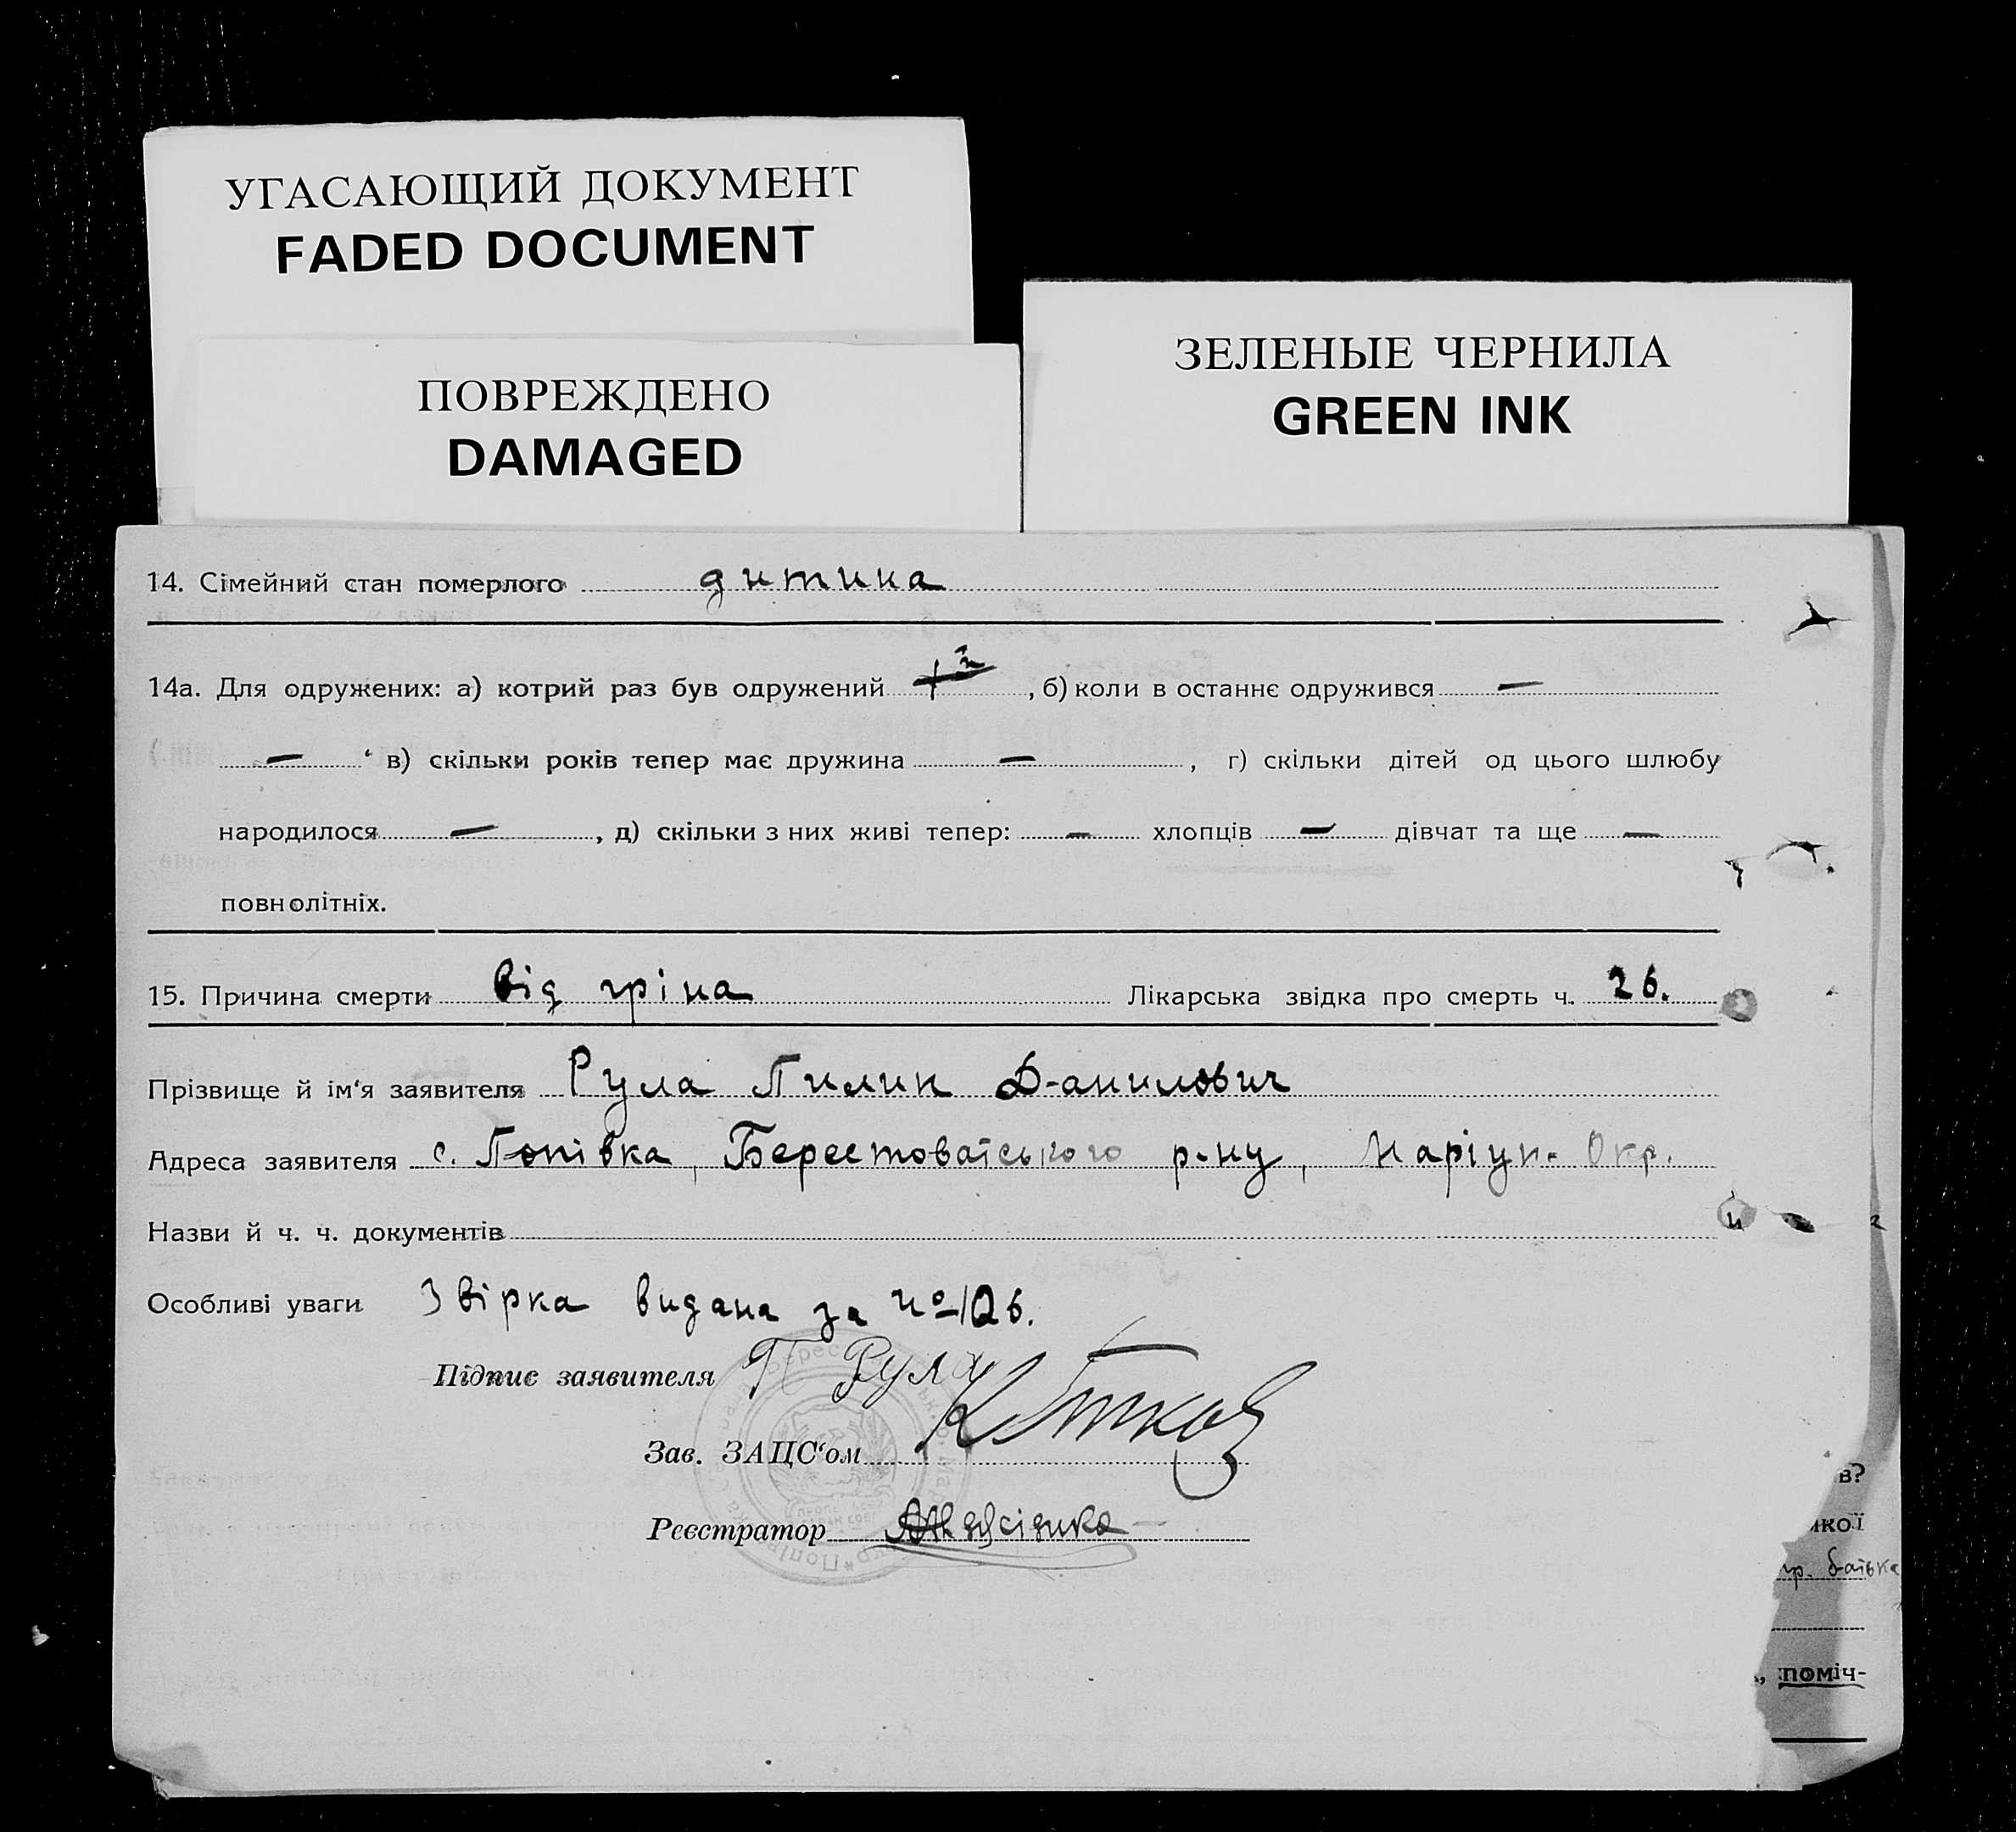 УГАСАЮЩИЙ ДОКУМЕНТ
FADED DOCUMENT
ПОВРЕЖДЕНО
DAMAGED
ЗЕЛЕНЫЕ ЧЕРНИЛА
GREEN INK
14. Сімейний стан померлого дитина
14а. Для одружених: а) котрий раз був одружений , б) коли в останнє одружився —
— ‘ в) скільки років тепер має дружина — , г) скільки дітей од цього шлюбу
народилося — , д) скільки з них живі тепер: — хлопців — дівчат та ще —
повнолітніх.
15. Причина смерти від гріпа Лікарська звідка про смерть ч. 26.
Прізвище й ім‘я заявителя Рула Пилип Данилович
Адреса заявителя с. Попівка, Берестоваїського р-ну, Маріуп. Окр.
Назви й ч. ч. документів
Особливі уваги Звірка видана за №126.
Підпис заявителя П Рула
Зав. ЗАЦС‘ом
Реєстратор
в?
икої
гр. батька
, поміч-